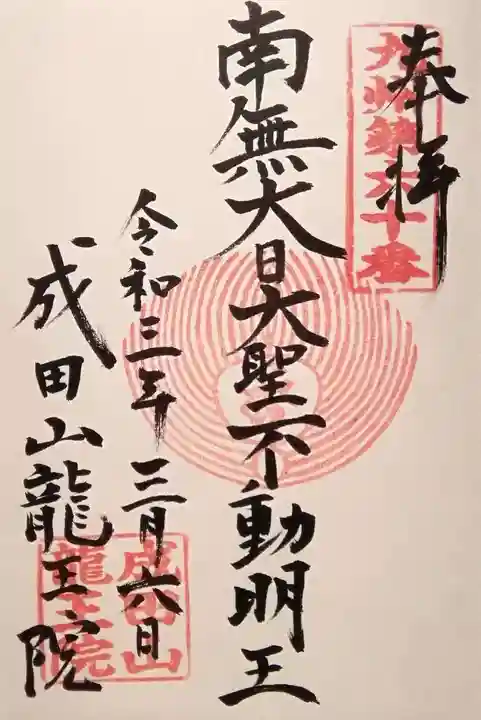 奉拝
九州鎮六十番
南無大日大聖不動明王
令和三年三月六日
成田山龍王院
成田山
龍王院